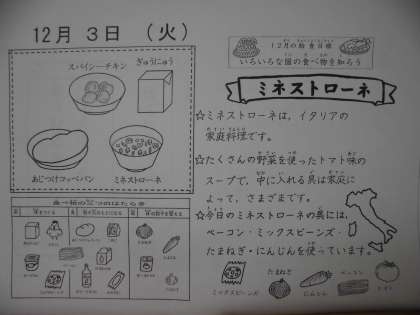 12月 3日 (火)
ぎゅうにゅう
スパイシーチキン
あじつけコッペパン
ミネストローネ
食べ物の三つのはたらき
12月の給食目標
いろいろな国の食べ物を知ろう
ミネストローネ
☆ミネストローネは，イタリアの
家庭料理です。
☆たくさんの野菜を使ったトマト味の
スープで，中に入れる具は家庭に
よって，さまざまです。
☆今日のミネストローネの具には，
ベーコン・ミックスビーンズ・
たまねぎ・にんじんを使っています。
ミックスビーンズ
たまねぎ
にんじん
ベーコン
トマト